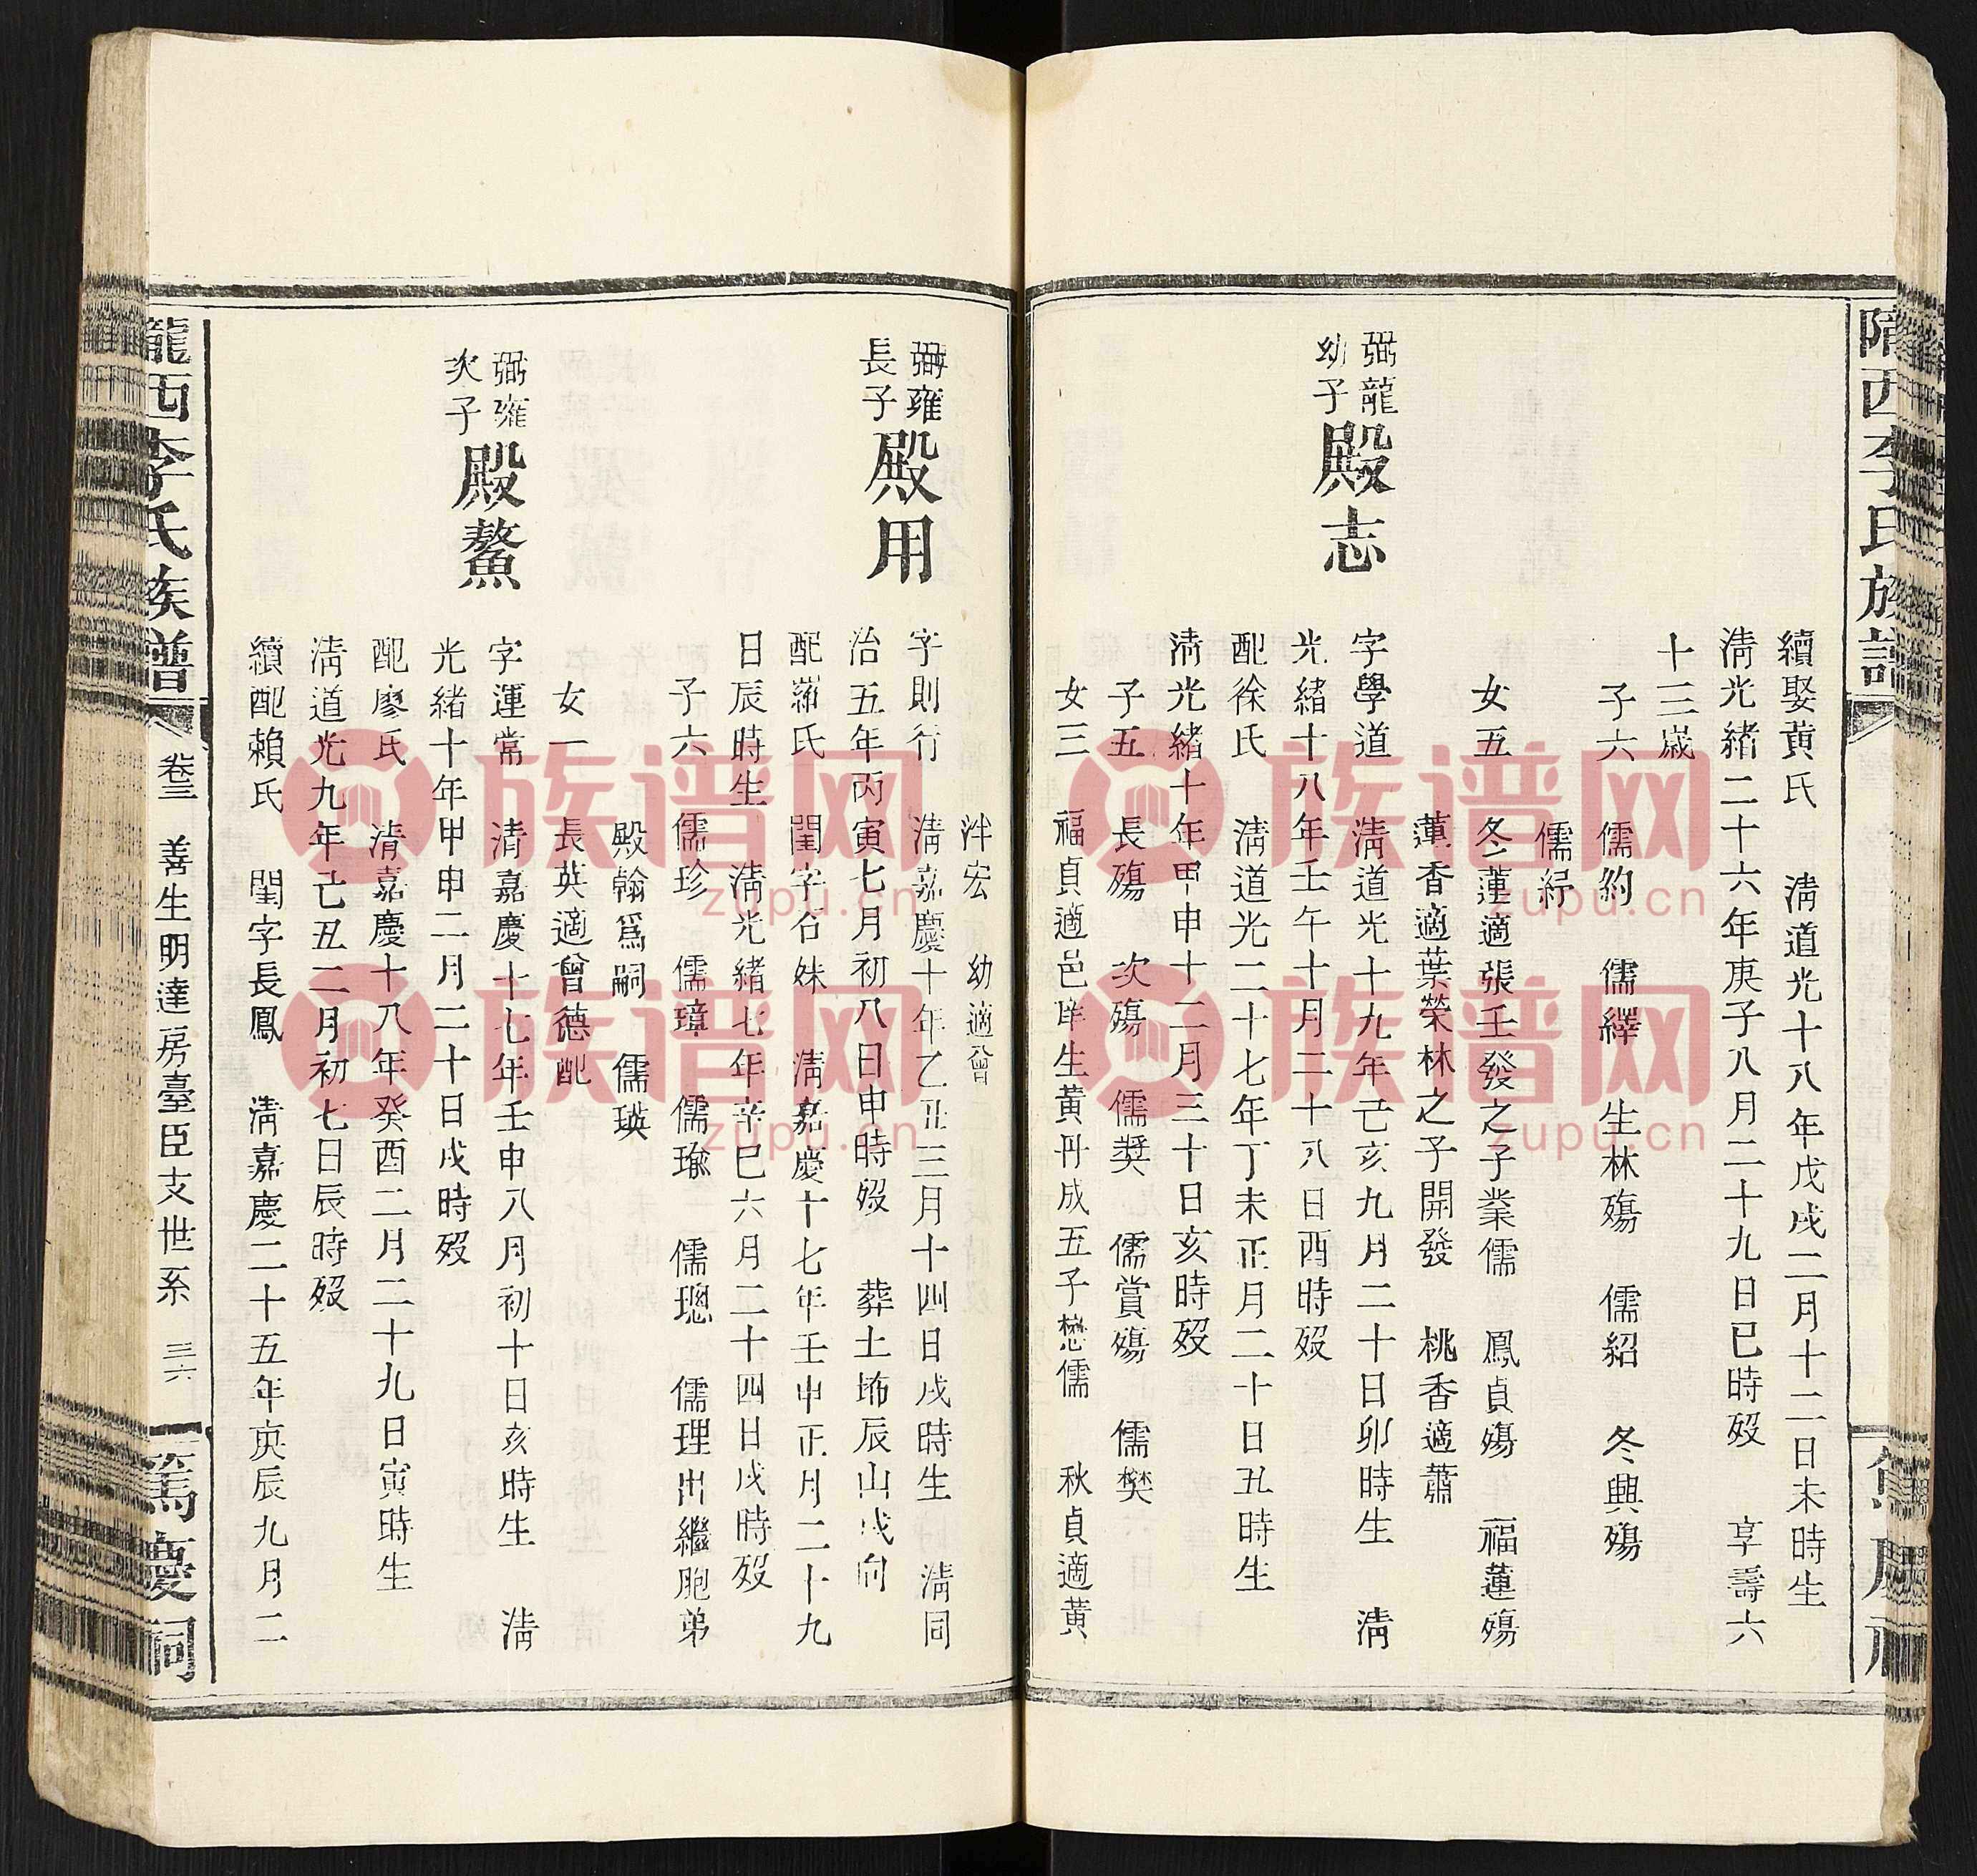 續娶黃氏　清道光十八年戊戌二月十二日未時生
清光緒二十六年庚子八月二十九日巳時歿　享壽六
十三歲
子六　儒約　儒繹　生林殤　儒紹　冬興殤
儒紓
女五　冬蓮適張壬發之子業儒　鳳貞殤　福蓮殤
蓮香適葉榮林之子開發　桃香適蕭
弼龍
幼子
殿志
字學道　清道光十九年己亥九月二十日卯時生　清
光緒十八年壬午十月二十八日酉時歿
配徐氏　清道光二十七年丁未正月二十日丑時生
清光緒十年甲申十二月三十日亥時歿
子五　長殤　次殤　儒獎　儒賞殤　儒樊
女三　福貞適邑庠生黃丹成五子懋儒　秋貞適黃
泮宏　幼適曾
弼雍
長子
殿用
字則行　清嘉慶十年乙丑三月十四日戌時生　清同
治五年丙寅七月初八日申時歿　葬土地辰山戌向
配羅氏　閨字石妹　清嘉慶十七年壬申正月二十九
日辰時生　清光緒七年辛巳六月二十四日戌時歿
子六　儒珍　儒璋　儒瑜　儒璁　儒理出繼胞弟
殿翰爲嗣　儒瑛
女一　長英適曾德配
弼雍
次子
殿鰲
字運常　清嘉慶十七年壬申八月初十日亥時生　清
光緒十年甲申二月二十日戌時歿
配廖氏　清嘉慶十八年癸酉二月二十九日寅時生
清道光九年己丑二月初七日辰時歿
續配賴氏　閨字長鳳　清嘉慶二十五年庚辰九月二
隴西李氏族譜　卷三　善生明達房臺臣支世系　三六　篤慶祠
族谱网
zupu.cn
族谱网
zupu.cn
族谱网
zupu.cn
族谱网
zupu.cn